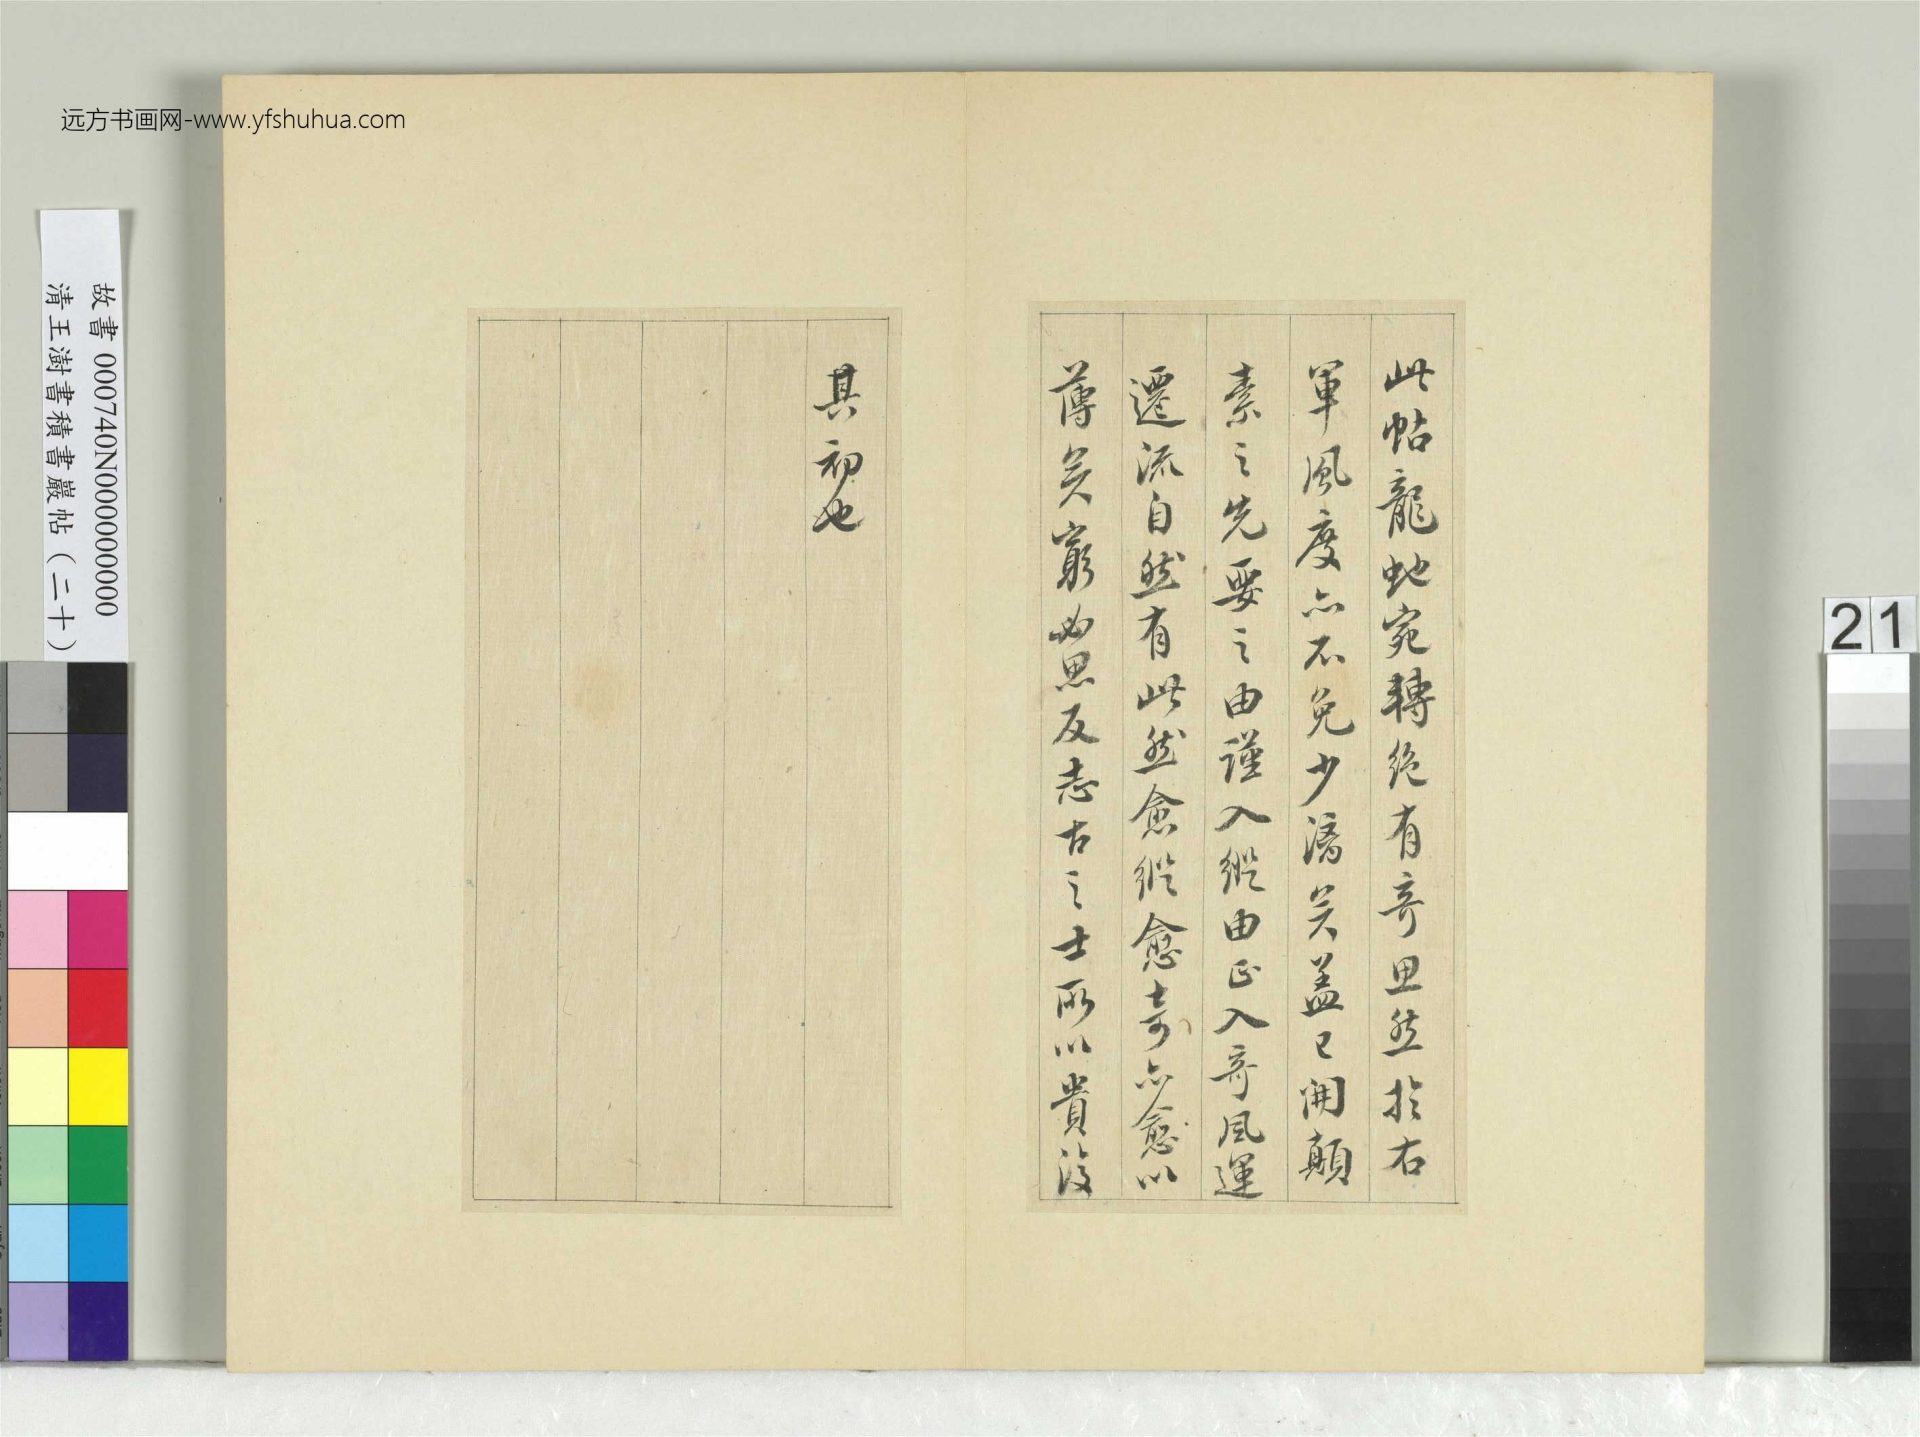 远方书画网-www.yfshuhua.com
故書 000740N000000000
清王澍書積書巖帖（二十）
21
此帖龍虵宛轉絶有奇思然於右
軍風度亦不免少漓矣蓋已開顛
素之先要之由謹入縱由正入奇風運
遷流自然有此然愈縱愈奇亦愈以
薄矣窮必思反志古之士所以貴復
其初也